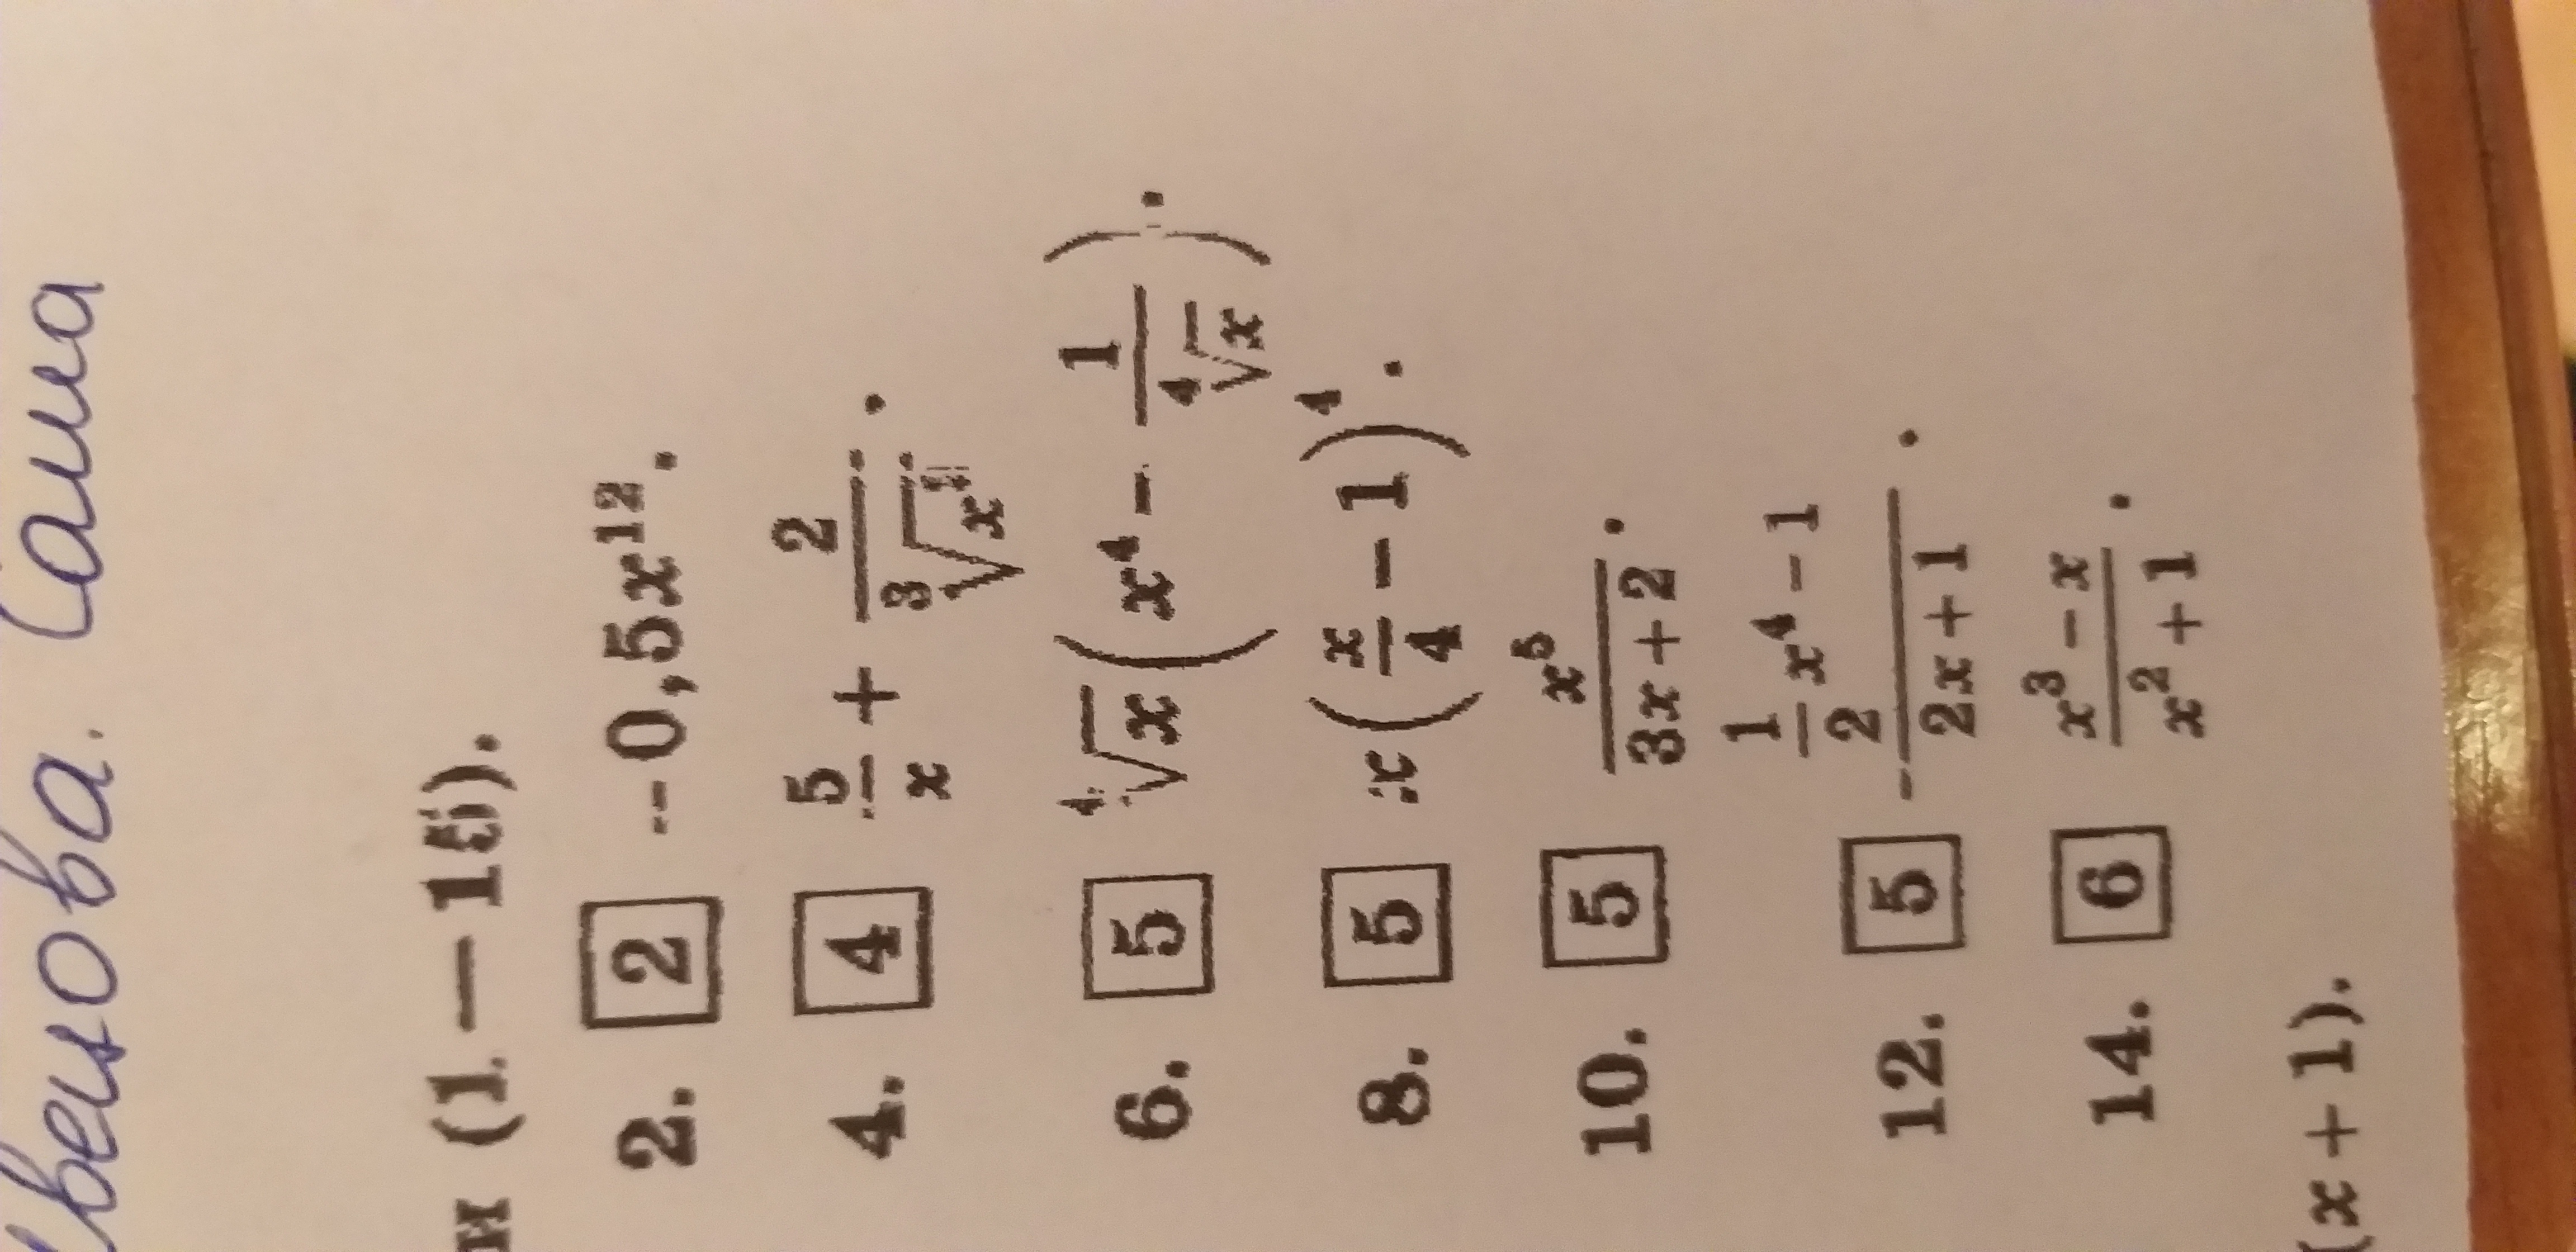 Саша
(1 — 15).
2. 2 -0,5x¹².
4. 4 -5/x + 2/∛x.
6. 5 ⁴√x(x⁴ - 1/⁴√x).
8. 5 x(x/4 - 1)⁴.
10. 5 x⁵/(3x + 2).
12. 5 -(1/2 x⁴ - 1)/(2x + 1).
14. 6 (x³ - x)/(x² + 1).
(x + 1).